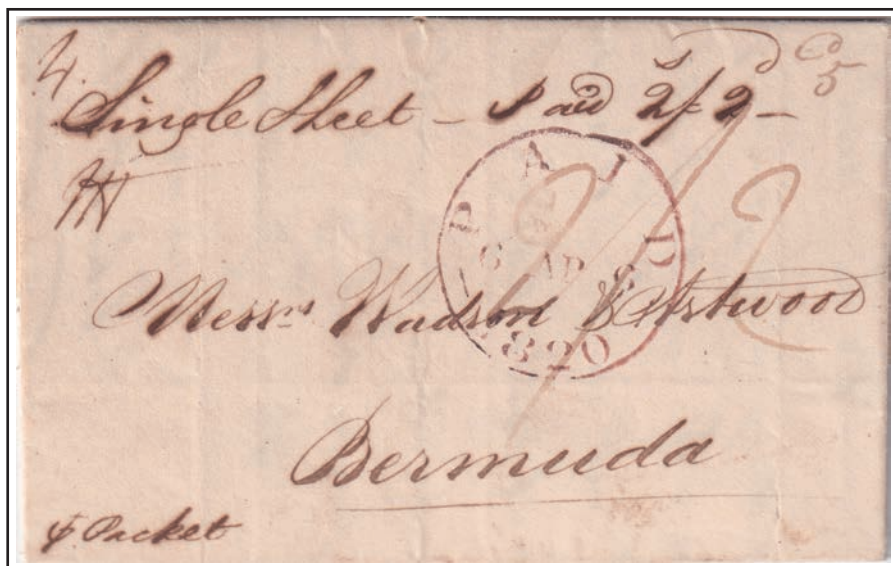 4. Single Sheet — Paid 2/2 — 5
PAID
6 AP 6
1820
Messrs Wadson & Astwood
Bermuda
⅌ Packet